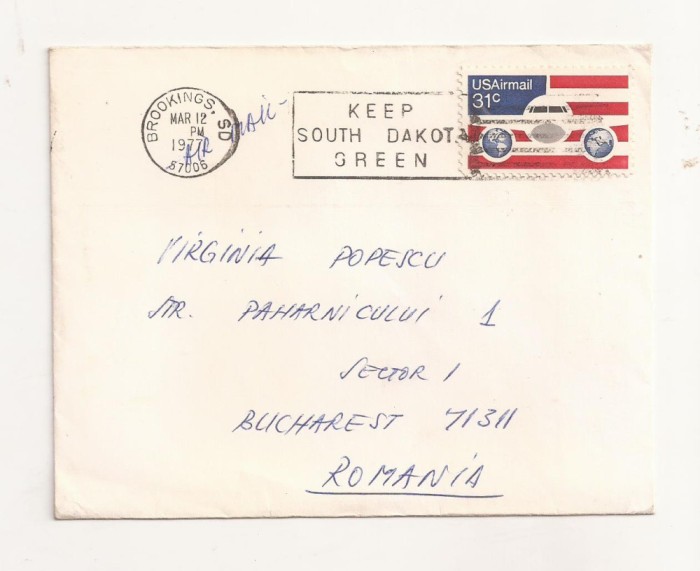 BROOKINGS, SD
MAR 12
PM
1977
57006
AIR MAIL-
KEEP
SOUTH DAKOTA
GREEN
USAirmail
31c
VIRGINIA POPESCU
STR. PAHARNICULUI 1
SECTOR 1
BUCHAREST 71311
ROMANIA